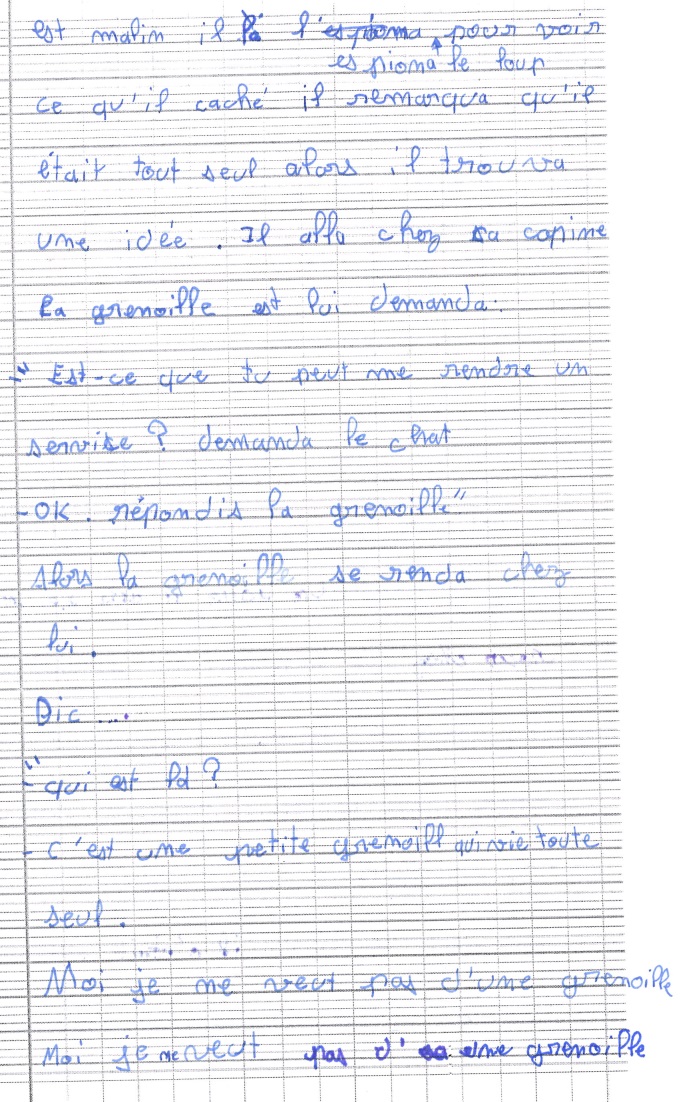 est malin il l'espiona pour voir
espiona le loup
ce qu'il caché il remarqua qu'il
était tout seul alors il trouva
une idée. Il alla chez sa copine
la grenoille est lui demanda:
" Est-ce que tu peut me rendre un
servise ? demanda le chat
- OK. répondis la grenoille"
Alors la grenoille se renda chez
lui.
Dic ....
- "qui est là ?
- C'est une petite grenoill qui vie toute
seul.
Moi je ne veut pas d'une grenoille
Moi je ne veut pas d'une grenoille